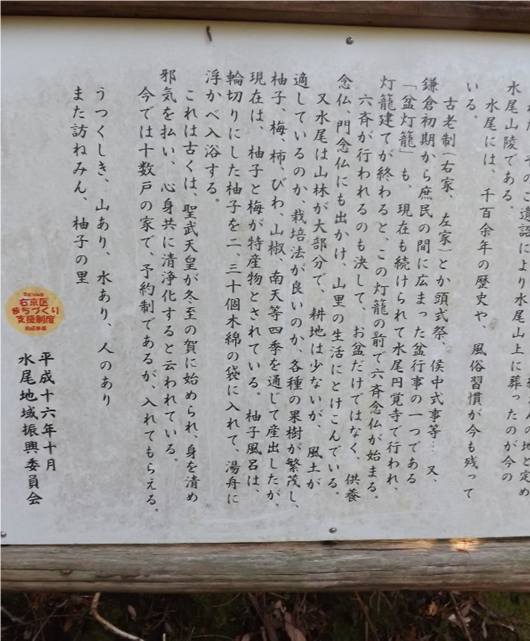 のご遺詔により水尾山上に葬ったのが今の
水尾山陵である。
水尾には、千百余年の歴史や、風俗習慣が今も残って
いる。
古老制(右家、左家)とか頭式祭、俣中式事等、又、
鎌倉初期から庶民の間に広まった盆行事の一つである
「盆灯籠」も、現在も続けられて水尾円覚寺で行われ、
灯籠建てが終わると、この灯籠の前で六斉念仏が始まる。
六斉が行われるのも決して、お盆だけではなく、供養
念仏、門念仏にも出かけ、山里の生活にとけこんでいる。
又水尾は山林が大部分で、耕地は少ないが、風土が
適しているのか、栽培法が良いのか、各種の果樹が繁茂し、
柚子、梅、柿、びわ、山椒、南天等四季を通じて産出したが、
現在は、柚子と梅が特産物とされている。柚子風呂は、
輪切りにした柚子を二、三十個木綿の袋に入れて、湯舟に
浮かべ入浴する。
これは古くは、聖武天皇が冬至の賀に始められ、身を清め
邪気を払い、心身共に清浄化すると云われている。
今では十数戸の家で、予約制であるが、入れてもらえる。
うつくしき、山あり、水あり、人のあり
また訪ねみん、柚子の里
右京区
まちづくり
支援制度
平成十六年十月
水尾地域振興委員会